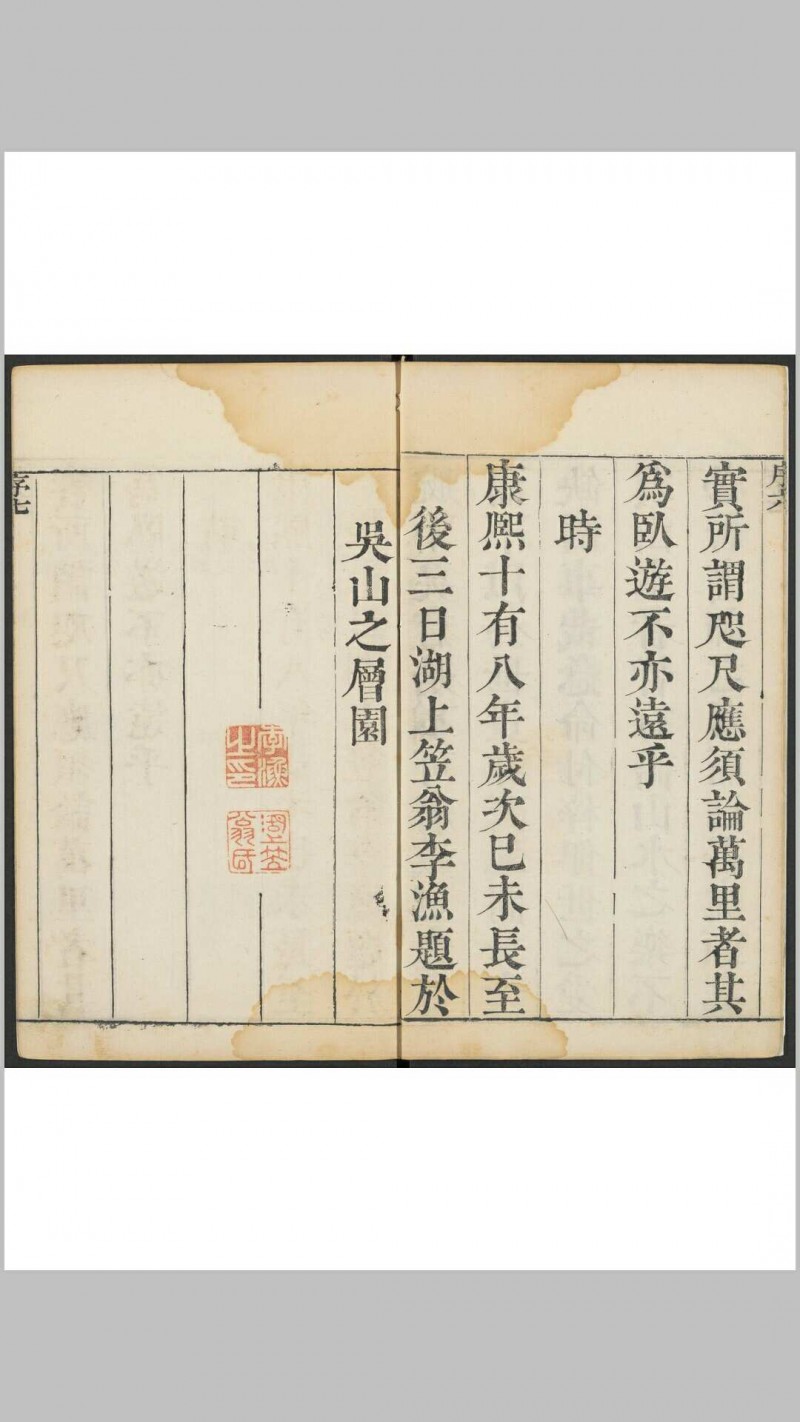 序六
實所謂咫尺應須論萬里者其
為臥遊不亦遠乎
時
康熙十有八年歲次已未長至
後三日湖上笠翁李漁題於
吳山之層園
李漁
之印
湖上笠
翁氏
序七